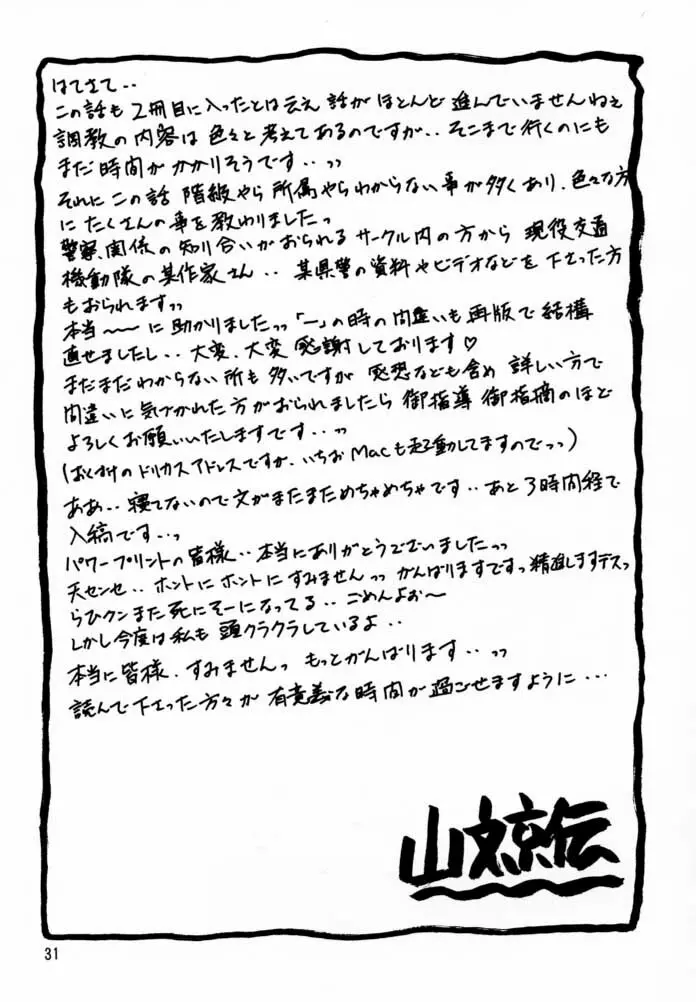 はてさて‥
この話も2冊目に入ったとは云え 話が ほとんど 進んでいませんねぇ
調教の内容は 色々と考えてあるのですが‥そこまで行くのにも
まだ時間が かかりそうです‥ッッ
それに この話 階級やら 所属やらわからない事が多くあり、色々な方
に たくさんの事を教わりましたっ
警察関係の知り合いがおられる サークル内の方から 現役交通
機動隊の某作家さん‥ 某県警の資料やビデオなどを 下さった方
もおられますッッ
本当〜〜に 助かりましたッッ「一」の時の間違いも再版で結構
直せましたし‥大変、大変 感謝しております♡
まだまだわからない所も多いですが 感想なども含め 詳しい方で
間違いに気づかれた方がおられましたら 御指導 御指摘のほど
よろしくお願いいたしますです‥ッッ
(おくづけのドリカスアドレスですが、いちおMacも起動してますのでッッ)
ああ‥寝てないので文がまたまためちゃめちゃです‥あと3時間経で
入稿です‥っ
パワープリントの皆様‥本当にありがとうございましたッッ
天センセ‥ホントに ホントに すみませんッッ がんばりますですっ精進しますデスっ
らひクンまた死にそーになってる‥ごめんよぉ〜
しかし今度は私も 頭クラクラしているよ‥
本当に皆様、すみませんっ もっとがんばります‥ッッ
読んで下さった方々が 有意義な時間が過ごせますように…
山文京伝
31